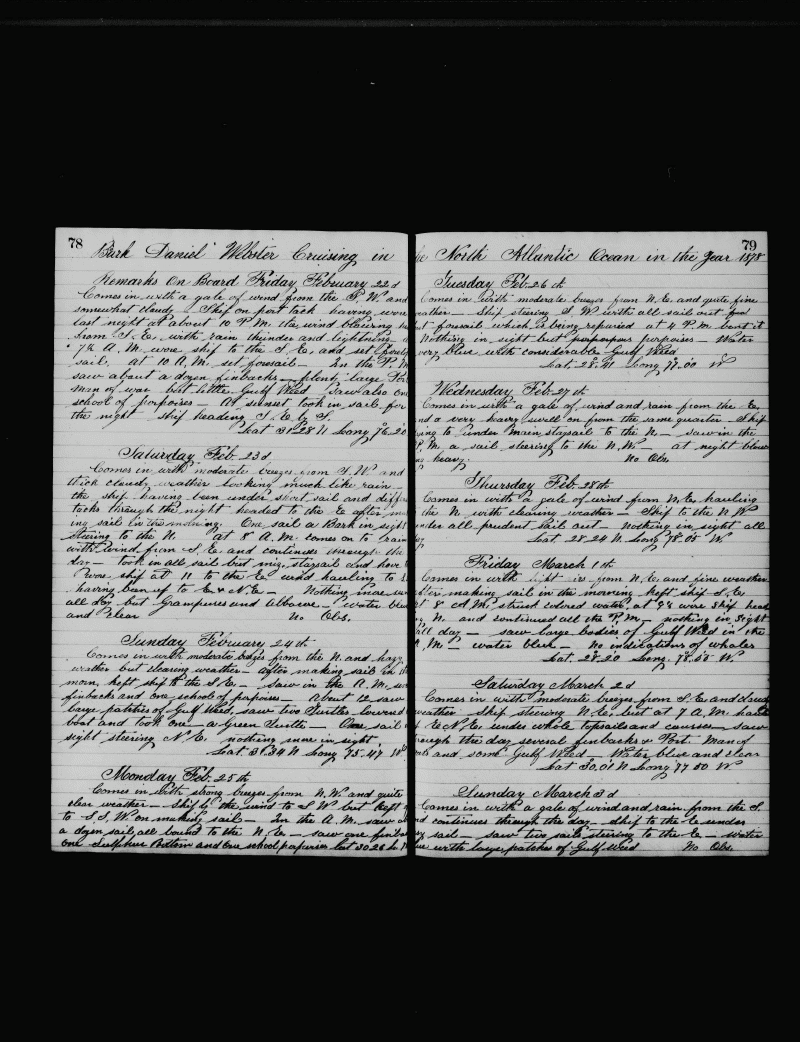 78
Bark Daniel Webster Cruising in
Remarks On Board Friday February 22d
Comes in with a gale of wind from the S. W. and
somewhat cloudy Ship on port tack having wore
last night at about 10 P.M. the wind blowing
from S. E. with rain thunder and lightning
7½ A. M. wore ship to the S. E. and set
sail. at 10 A. M. set foresail — In the P. M
saw about a dozen finbacks — plenty large Por
man of war but little Gulf Weed Saw also one
school of porpoises — At sunset took in sail for
the night Ship heading S. E. by S.
Lat 31°28 N Long 76.20
Saturday Feb 23d
Comes in with moderate breezes from S. W. and
thick cloudy weather looking much like rain
the ship having been under short sail and diff
tacks through the night headed to the E after
ing sail in the morning. One sail a Bark in sight
steering to the N. at 8 A. M. comes on to rain
with wind from S. E and continues through the
day — took in all sail but miz. staysail and hove
Wore ship at 11 to the E wind hauling to
having ban up to E & N. E — Nothing more
all day but Grampuses and Albacore — water blue
and clear No Obs.
Sunday February 24th
Comes in with moderate breezes from the N. and hazy
weather but clearing weather — after making sail in
morn, kept ship to the S. E — Saw in the A. M.
finbacks and one school of porpoises — About 12 saw
large patches of Gulf Weed, saw two Turtles lowered
boat and took one — a Green Turtle — One sail
sight steering N. E. nothing more in sight.
Lat. 31.34 N Long 75.47 W
Monday Feb. 25th
Comes in with strong breezes from N. W. and quite
clear weather — ship by the wind to S W but kept
to S. S. W. on making sail — In the A. M. saw
a dozen sail, all bound to the N. E. — saw one finb
one Sulphur Bottom and one school porpoises Lat 30 26
79
North Atlantic Ocean in the Year 1878
Tuesday Feb. 26th
Comes in with moderate breezes from N. E. and quite fine
weather — Ship steering S. W with all sail out
foresail which is being repaired at 4 P. M. bent it
Nothing in sight but porpoises — Water
very blue with considerable Gulf Weed
Lat. 28.41 Long 77.00 W
Wednesday Feb. 27th
Comes in with a gale of wind and rain from the E.
and a very heavy swell on from the same quarter Ship
to under main staysail to the N. — saw in the
P. M. a sail steering to the N. W. at night blow
heavy. No Obs
Thursday Feb. 28th
Comes in with a gale of wind from N. E, hauling
the N. with clearing weather — Ship to the N. W
under all prudent sail out — nothing in sight all
Lat. 28.24 N. Long 78.05 W
Friday March 1th
Comes in with from N. E. and fine weather
making sail in the morning kept ship S. E
at 8 A. M. struck colored water, at 9½ wore ship head
N. and continued all the P. M — nothing in sight
all day — saw large bodies of Gulf Weed in the
M. — water blue — No indications of whales
Lat. 28.20 Long. 78.55 W.
Saturday March 2d
Comes in with moderate breezes from S. E. and cloudy
weather Ship steering N. E, but at 7 A. M.
E N. E. under whole topsails and courses — saw
through the day several finbacks & Port. Man of
and some Gulf Weed — Water blue and clear
Lat 30.01 N Long 77 50 W
Sunday March 3d
Comes in with a gale of wind and rain from the S.
and continues through the day ship to the E under
sail — saw two sails steering to the E — water
with large patches of Gulf Weed No Obs.